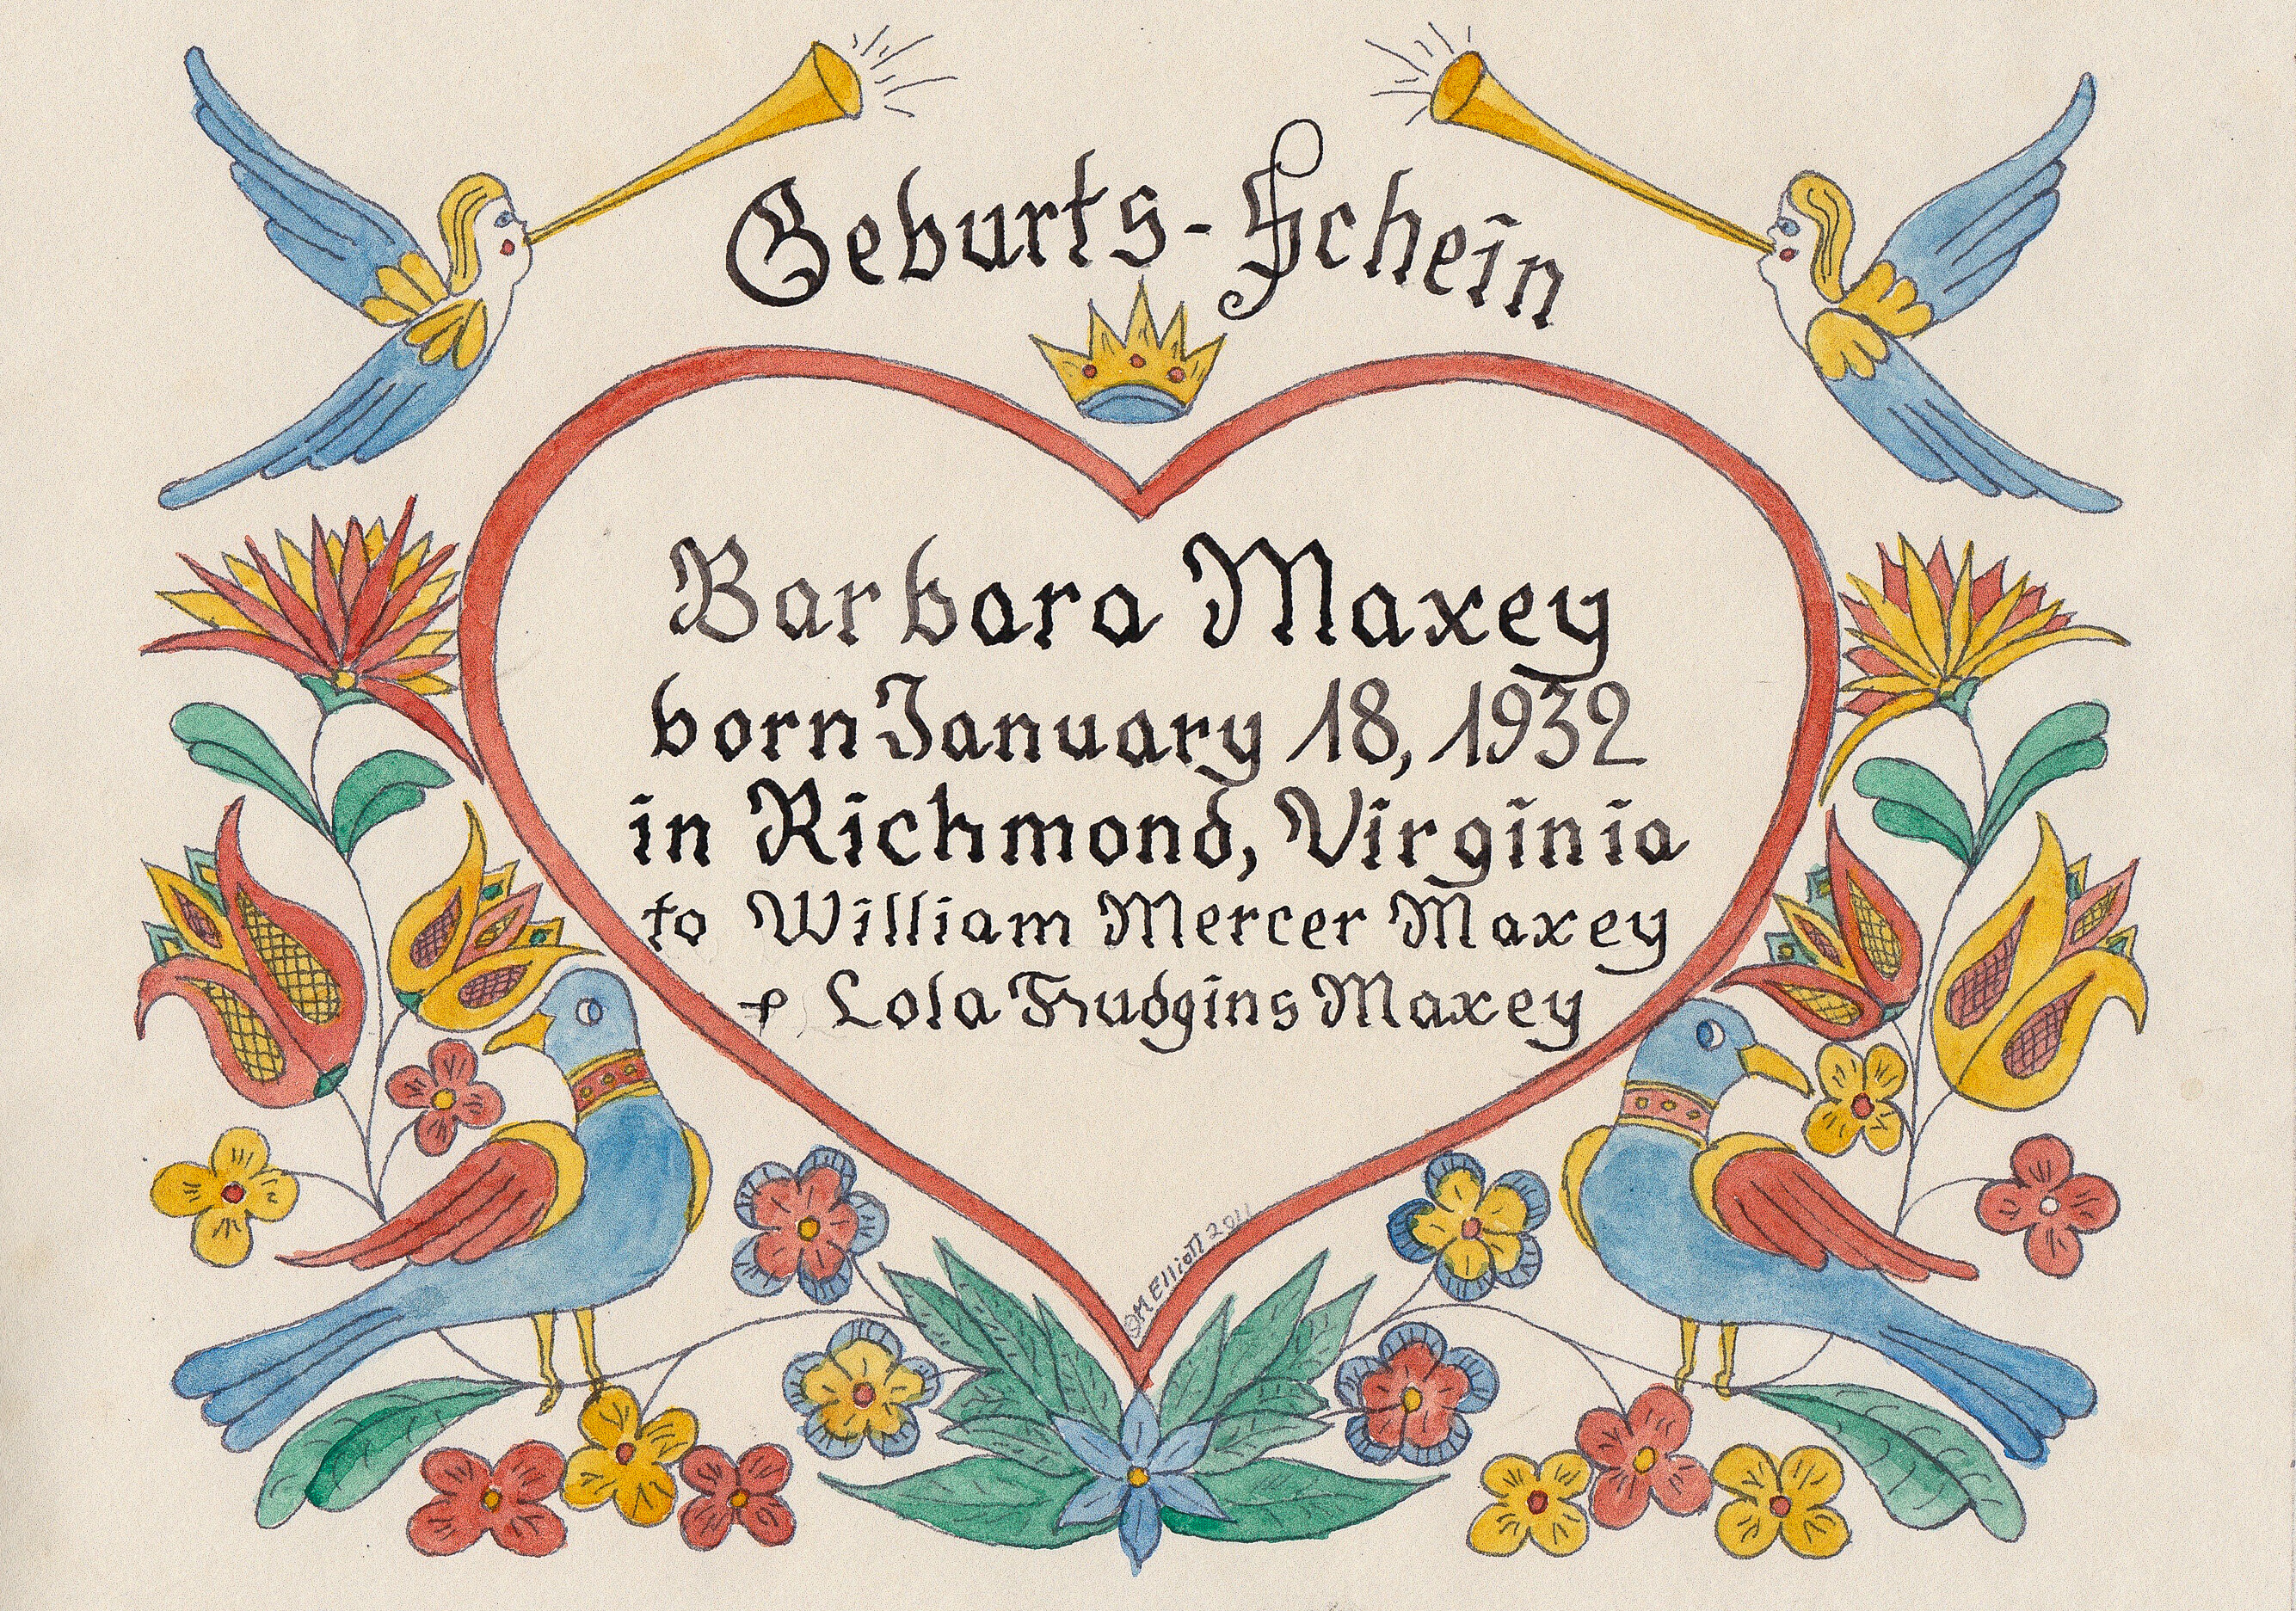 Geburts-Schein
Barbara Maxey
born January 18, 1932
in Richmond, Virginia
to William Mercer Maxey
& Lola Hudgins Maxey
©M Elliott 2011